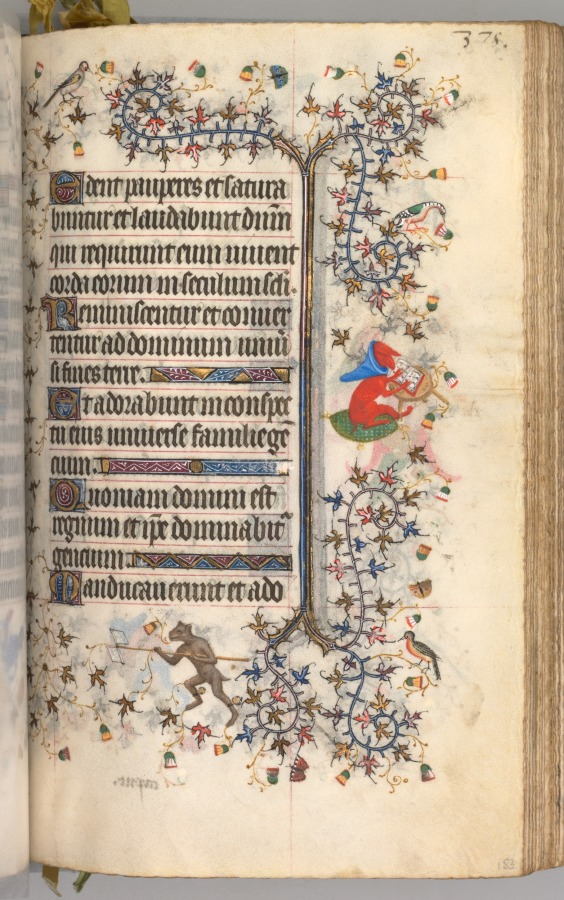 375.
Edent pauperes et satura
buntur et laudabunt dnm̄
qui requirunt eum uiuent
corda eorum in seculum scli̅.
Reminiscentur et conuer
tentur ad dominum uniu̅
si fines terre.
Et adorabunt in conspe
tu eius uniuerse familie ge̅
cium.
Quoniam domini est
regnum et ip̅e dominabit᷑
gencium.
Manducauerunt et ado
183